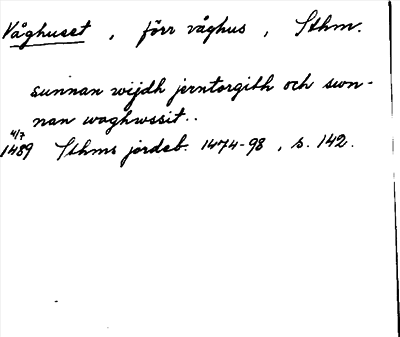 Våghuset , förr våghus , Sthm.
sunnan wijdh jerntorgith och swn-
nan waghwssit..
4/7
1489 Sthms jordeb. 1474-98 , s. 142.